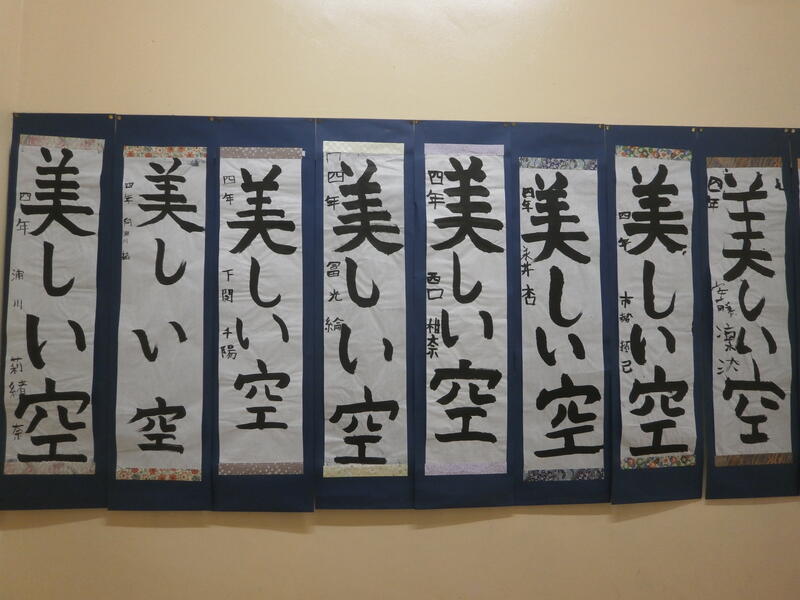 美しい空
四年
美しい空
四年
美しい空
四年 永井 杏
美しい空
四年 西口 柑奈
美しい空
四年 冨光 綸
美しい空
四年 下関 千陽
美しい空
四年
美しい空
四年 浦川 莉緒奈